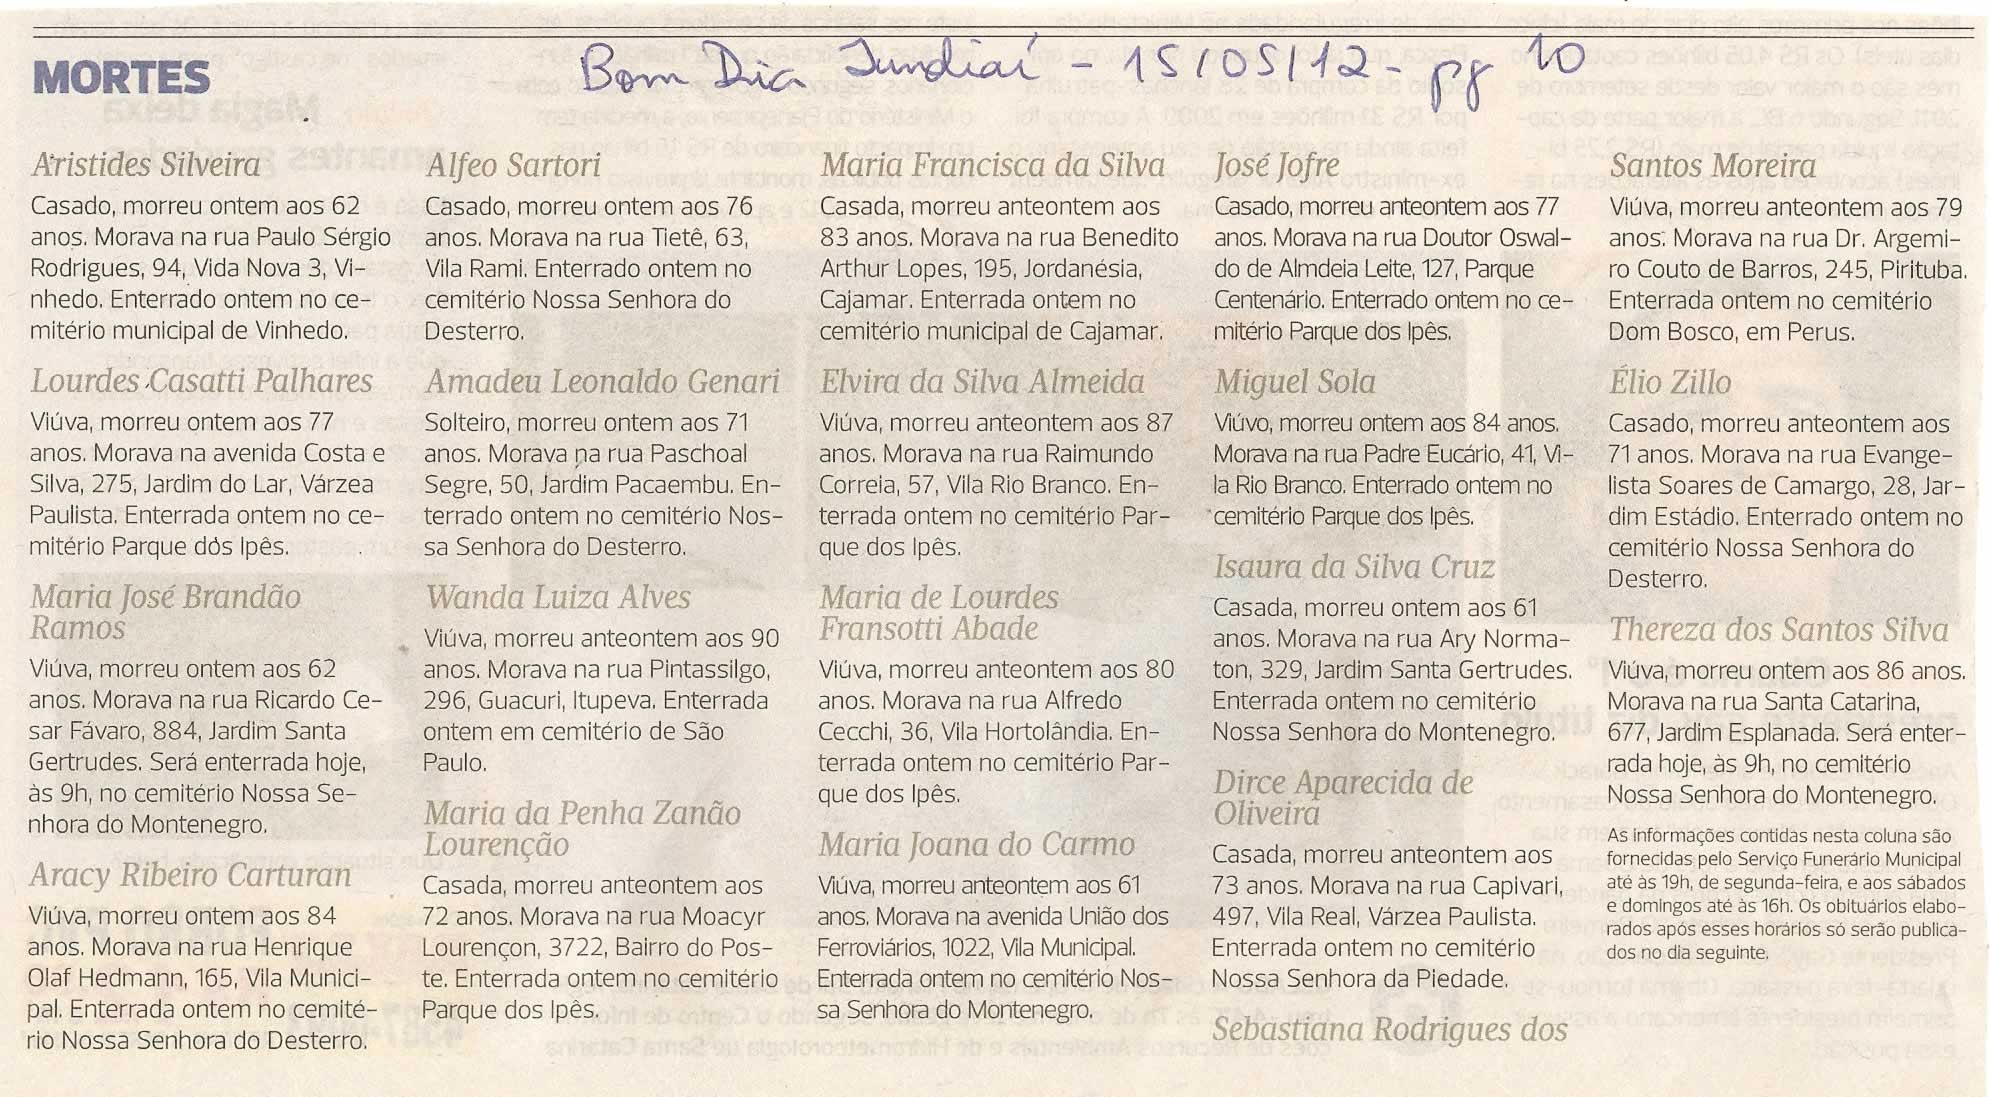 MORTES
Bom Dia Jundiaí - 15/05/12 - pg 10
Aristides Silveira
Casado, morreu ontem aos 62
anos. Morava na rua Paulo Sérgio
Rodrigues, 94, Vida Nova 3, Vi-
nhedo. Enterrado ontem no ce-
mitério municipal de Vinhedo.
Lourdes Casatti Palhares
Viúva, morreu ontem aos 77
anos. Morava na avenida Costa e
Silva, 275, Jardim do Lar, Várzea
Paulista. Enterrada ontem no ce-
mitério Parque dos Ipês.
Maria José Brandão
Ramos
Viúva, morreu ontem aos 62
anos. Morava na rua Ricardo Ce-
sar Fávaro, 884, Jardim Santa
Gertrudes. Será enterrada hoje,
às 9h, no cemitério Nossa Se-
nhora do Montenegro.
Aracy Ribeiro Carturan
Viúva, morreu ontem aos 84
anos. Morava na rua Henrique
Olaf Hedmann, 165, Vila Munici-
pal. Enterrada ontem no cemité-
rio Nossa Senhora do Desterro.
Alfeo Sartori
Casado, morreu ontem aos 76
anos. Morava na rua Tietê, 63,
Vila Rami. Enterrado ontem no
cemitério Nossa Senhora do
Desterro.
Amadeu Leonaldo Genari
Solteiro, morreu ontem aos 71
anos. Morava na rua Paschoal
Segre, 50, Jardim Pacaembu. En-
terrado ontem no cemitério Nos-
sa Senhora do Desterro.
Wanda Luiza Alves
Viúva, morreu anteontem aos 90
anos. Morava na rua Pintassilgo,
296, Guacuri, Itupeva. Enterrada
ontem em cemitério de São
Paulo.
Maria da Penha Zanão
Lourenção
Casada, morreu anteontem aos
72 anos. Morava na rua Moacyr
Lourençon, 3722, Bairro do Pos-
te. Enterrada ontem no cemitério
Parque dos Ipês.
Maria Francisca da Silva
Casada, morreu anteontem aos
83 anos. Morava na rua Benedito
Arthur Lopes, 195, Jordanésia,
Cajamar. Enterrada ontem no
cemitério municipal de Cajamar.
Elvira da Silva Almeida
Viúva, morreu anteontem aos 87
anos. Morava na rua Raimundo
Correia, 57, Vila Rio Branco. En-
terrada ontem no cemitério Par-
que dos Ipês.
Maria de Lourdes
Fransotti Abade
Viúva, morreu anteontem aos 80
anos. Morava na rua Alfredo
Cecchi, 36, Vila Hortolândia. En-
terrada ontem no cemitério Par-
que dos Ipês.
Maria Joana do Carmo
Viúva, morreu anteontem aos 61
anos. Morava na avenida União dos
Ferroviários, 1022, Vila Municipal.
Enterrada ontem no cemitério Nos-
sa Senhora do Montenegro.
José Jofre
Casado, morreu ontem aos 77
anos. Morava na rua Doutor Oswal-
do de Almdeia Leite, 127, Parque
Centenário. Enterrado ontem no ce-
mitério Parque dos Ipês.
Miguel Sola
Viúvo, morreu ontem aos 84 anos.
Morava na rua Padre Eucário, 41, Vi-
la Rio Branco. Enterrado ontem no
cemitério Parque dos Ipês.
Isaura da Silva Cruz
Casada, morreu ontem aos 61
anos. Morava na rua Ary Norma-
ton, 329, Jardim Santa Gertrudes.
Enterrada ontem no cemitério
Nossa Senhora do Montenegro.
Dirce Aparecida de
Oliveira
Casada, morreu anteontem aos
73 anos. Morava na rua Capivari,
497, Vila Real, Várzea Paulista.
Enterrada ontem no cemitério
Nossa Senhora da Piedade.
Sebastiana Rodrigues dos
Santos Moreira
Viúva, morreu anteontem aos 79
anos. Morava na rua Dr. Argemi-
ro Couto de Barros, 245, Pirituba.
Enterrada ontem no cemitério
Dom Bosco, em Perus.
Élio Zillo
Casado, morreu anteontem aos
71 anos. Morava na rua Evange-
lista Soares de Camargo, 28, Jar-
dim Estádio. Enterrado ontem no
cemitério Nossa Senhora do
Desterro.
Thereza dos Santos Silva
Viúva, morreu ontem aos 86 anos.
Morava na rua Santa Catarina,
677, Jardim Esplanada. Será enter-
rada hoje, às 9h, no cemitério
Nossa Senhora do Montenegro.
As informações contidas nesta coluna são
fornecidas pelo Serviço Funerário Municipal
até às 19h, de segunda-feira, e aos sábados
e domingos até às 16h. Os obituários elabo-
rados após esses horários só serão publica-
dos no dia seguinte.